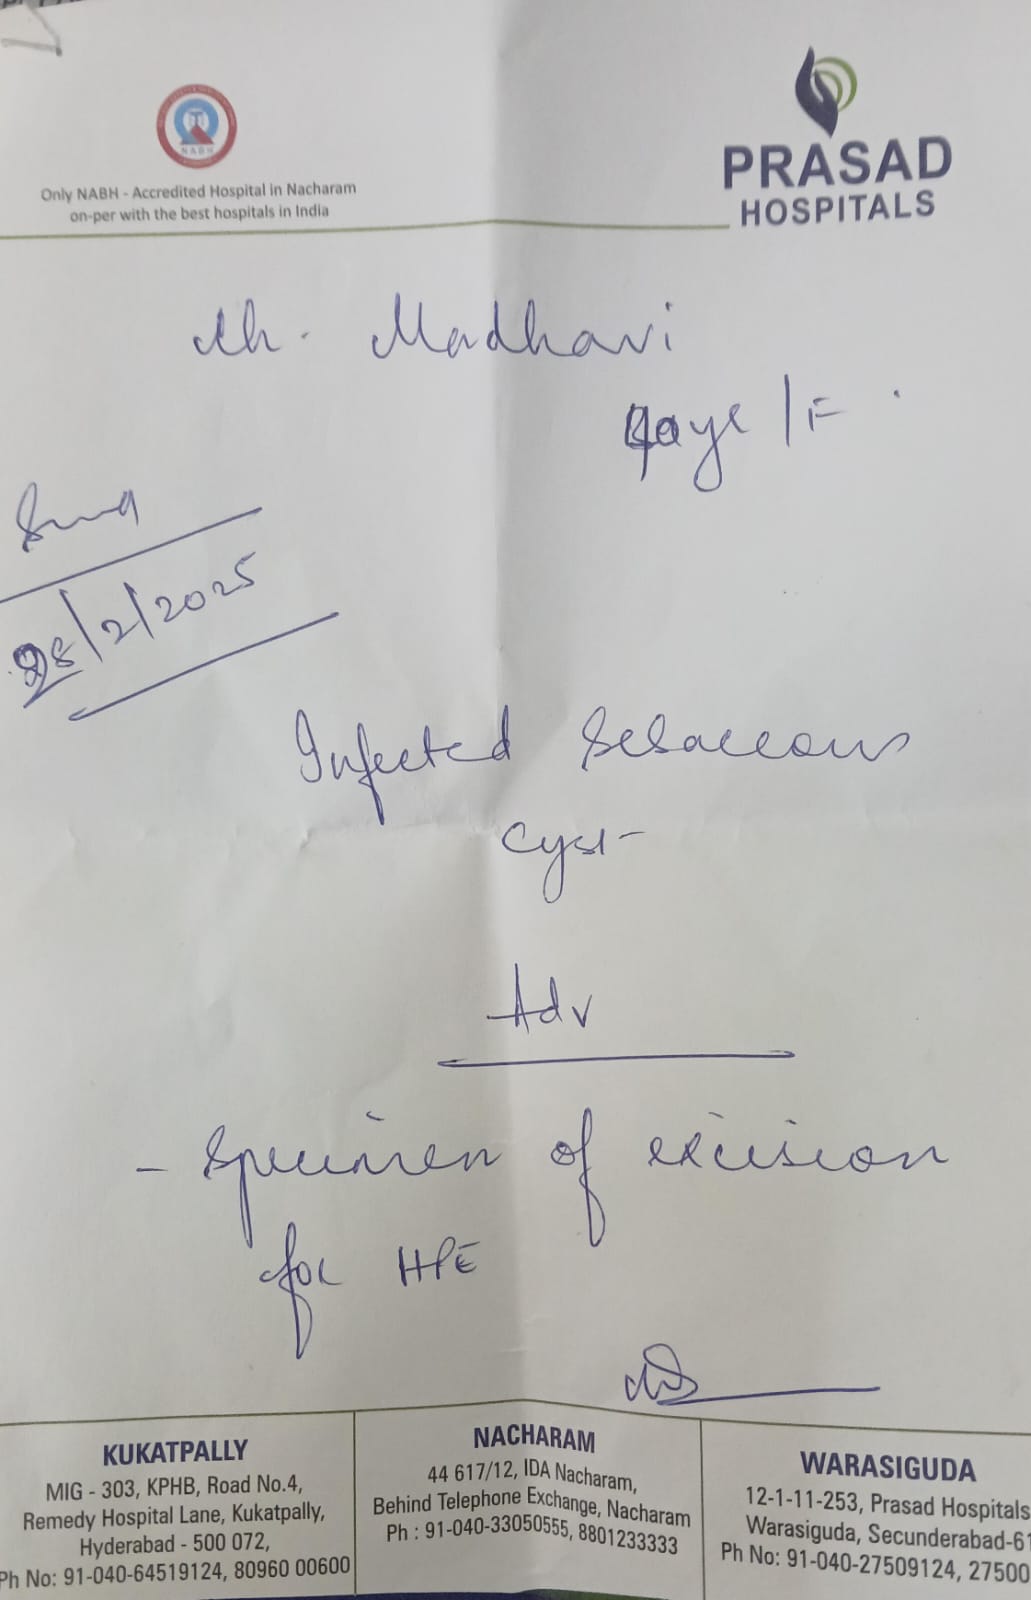 NABH
Only NABH - Accredited Hospital in Nacharam
on-per with the best hospitals in India
PRASAD
HOSPITALS
Ch. Madhavi
/F
28/2/2025
Infected Sebaceous
Cyst
Adv
- Specimen of excision
for HPE
KUKATPALLY
MIG - 303, KPHB, Road No.4,
Remedy Hospital Lane, Kukatpally,
Hyderabad - 500 072,
Ph No: 91-040-64519124, 80960 00600
NACHARAM
44 617/12, IDA Nacharam,
Behind Telephone Exchange, Nacharam
Ph : 91-040-33050555, 8801233333
WARASIGUDA
12-1-11-253, Prasad Hospitals
Warasiguda, Secunderabad-61
Ph No: 91-040-27509124, 27500